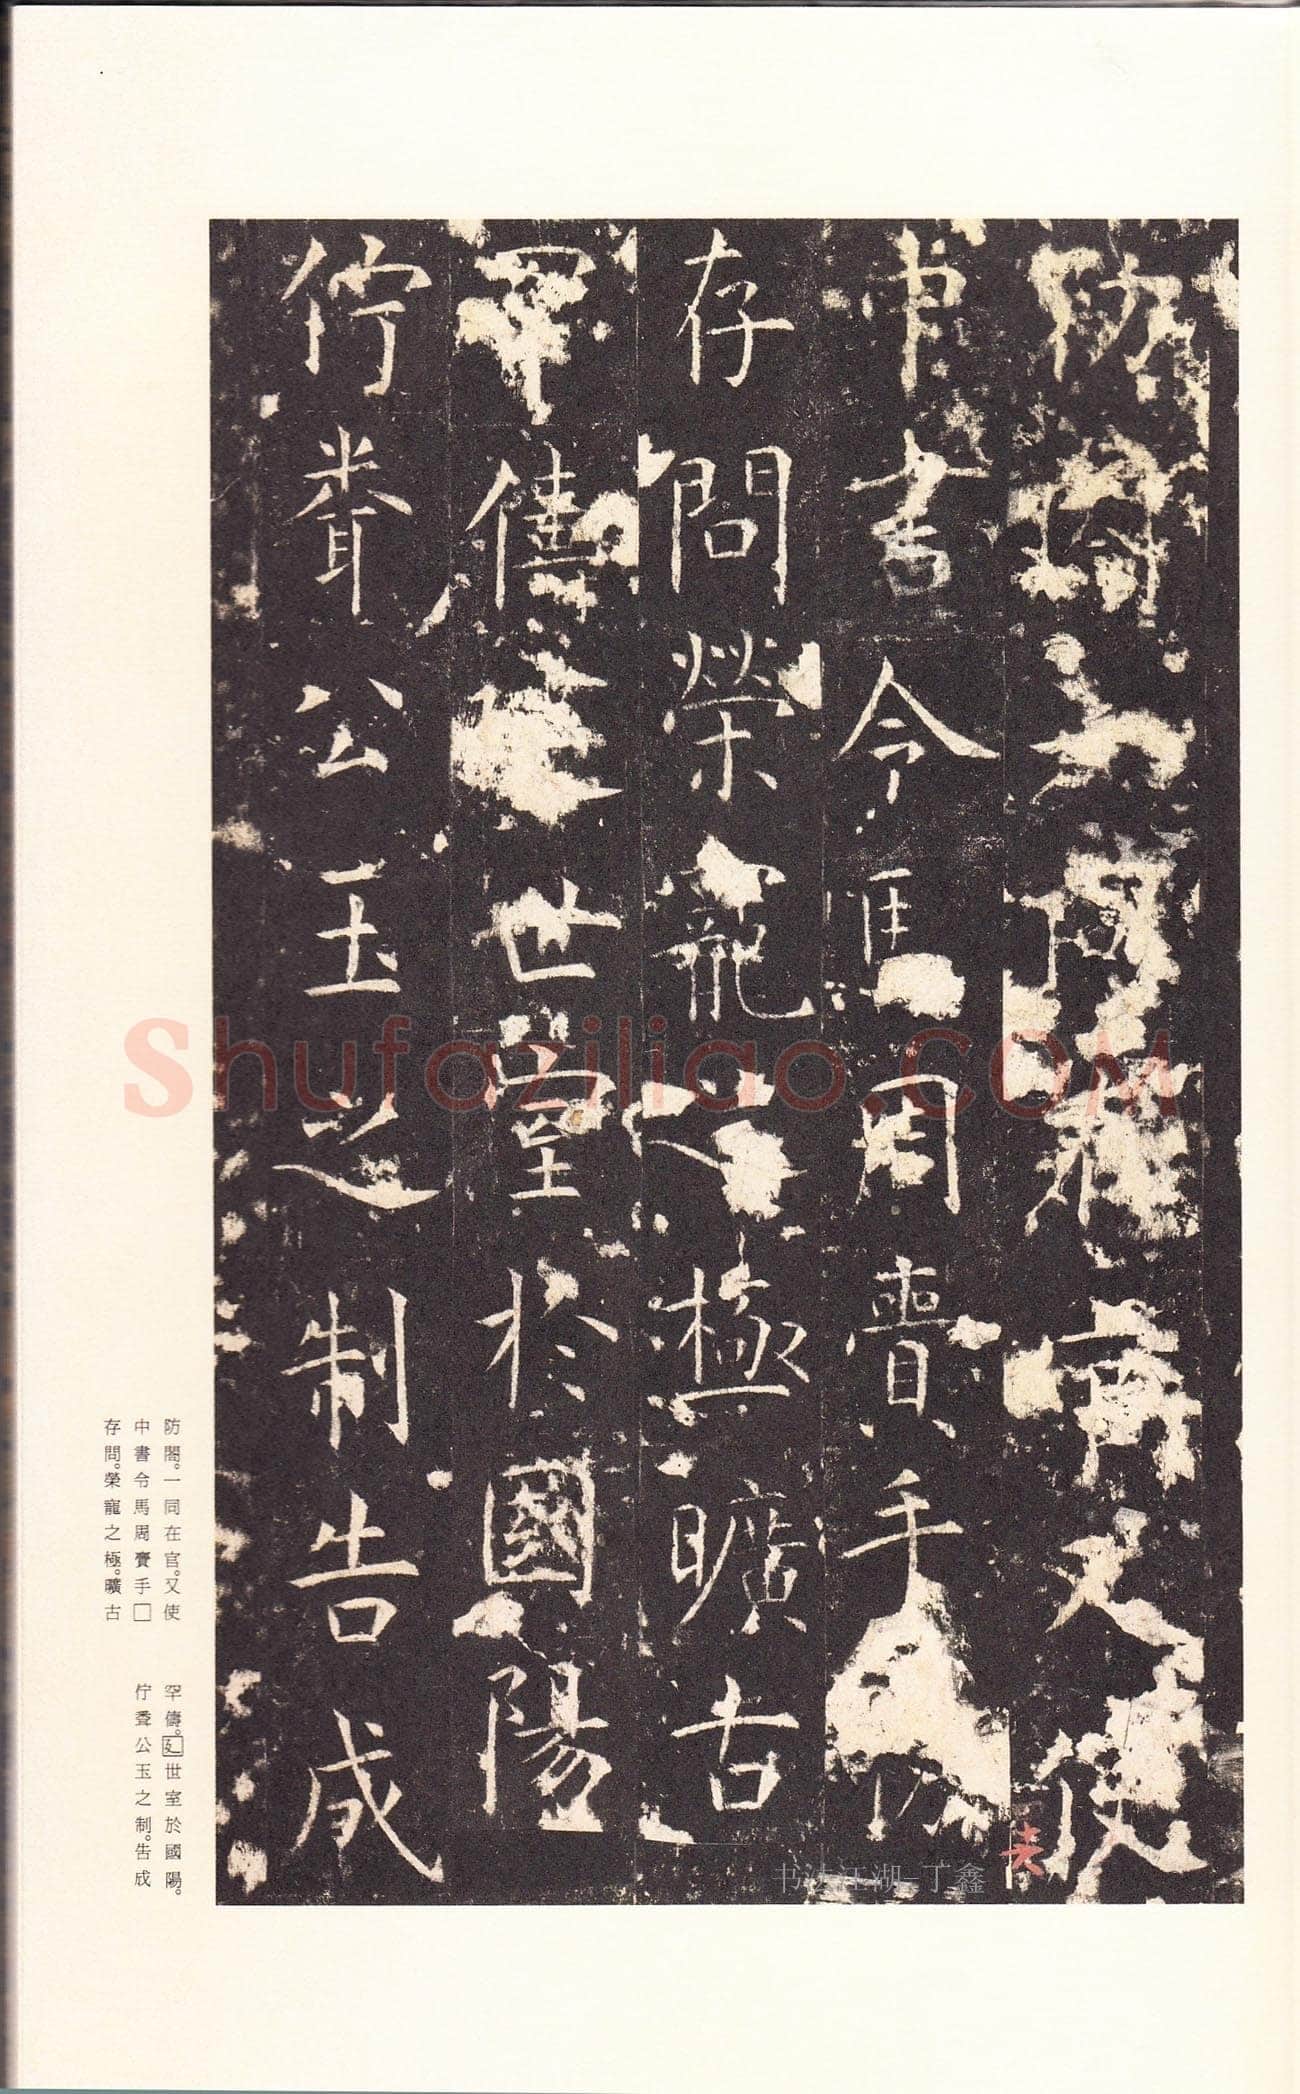 防閤一同在官又使
中書令馬周賷手
存問榮寵之極曠古
罕儔世室於國陽
佇聋公玉之制告成
防閤。一同在官。又使
中書令馬周賷手□
存問。榮寵之極。曠古
罕儔。廴世室於國陽。
佇聋公玉之制。告成
Shufaziliao.COM
书法江湖-丁鑫